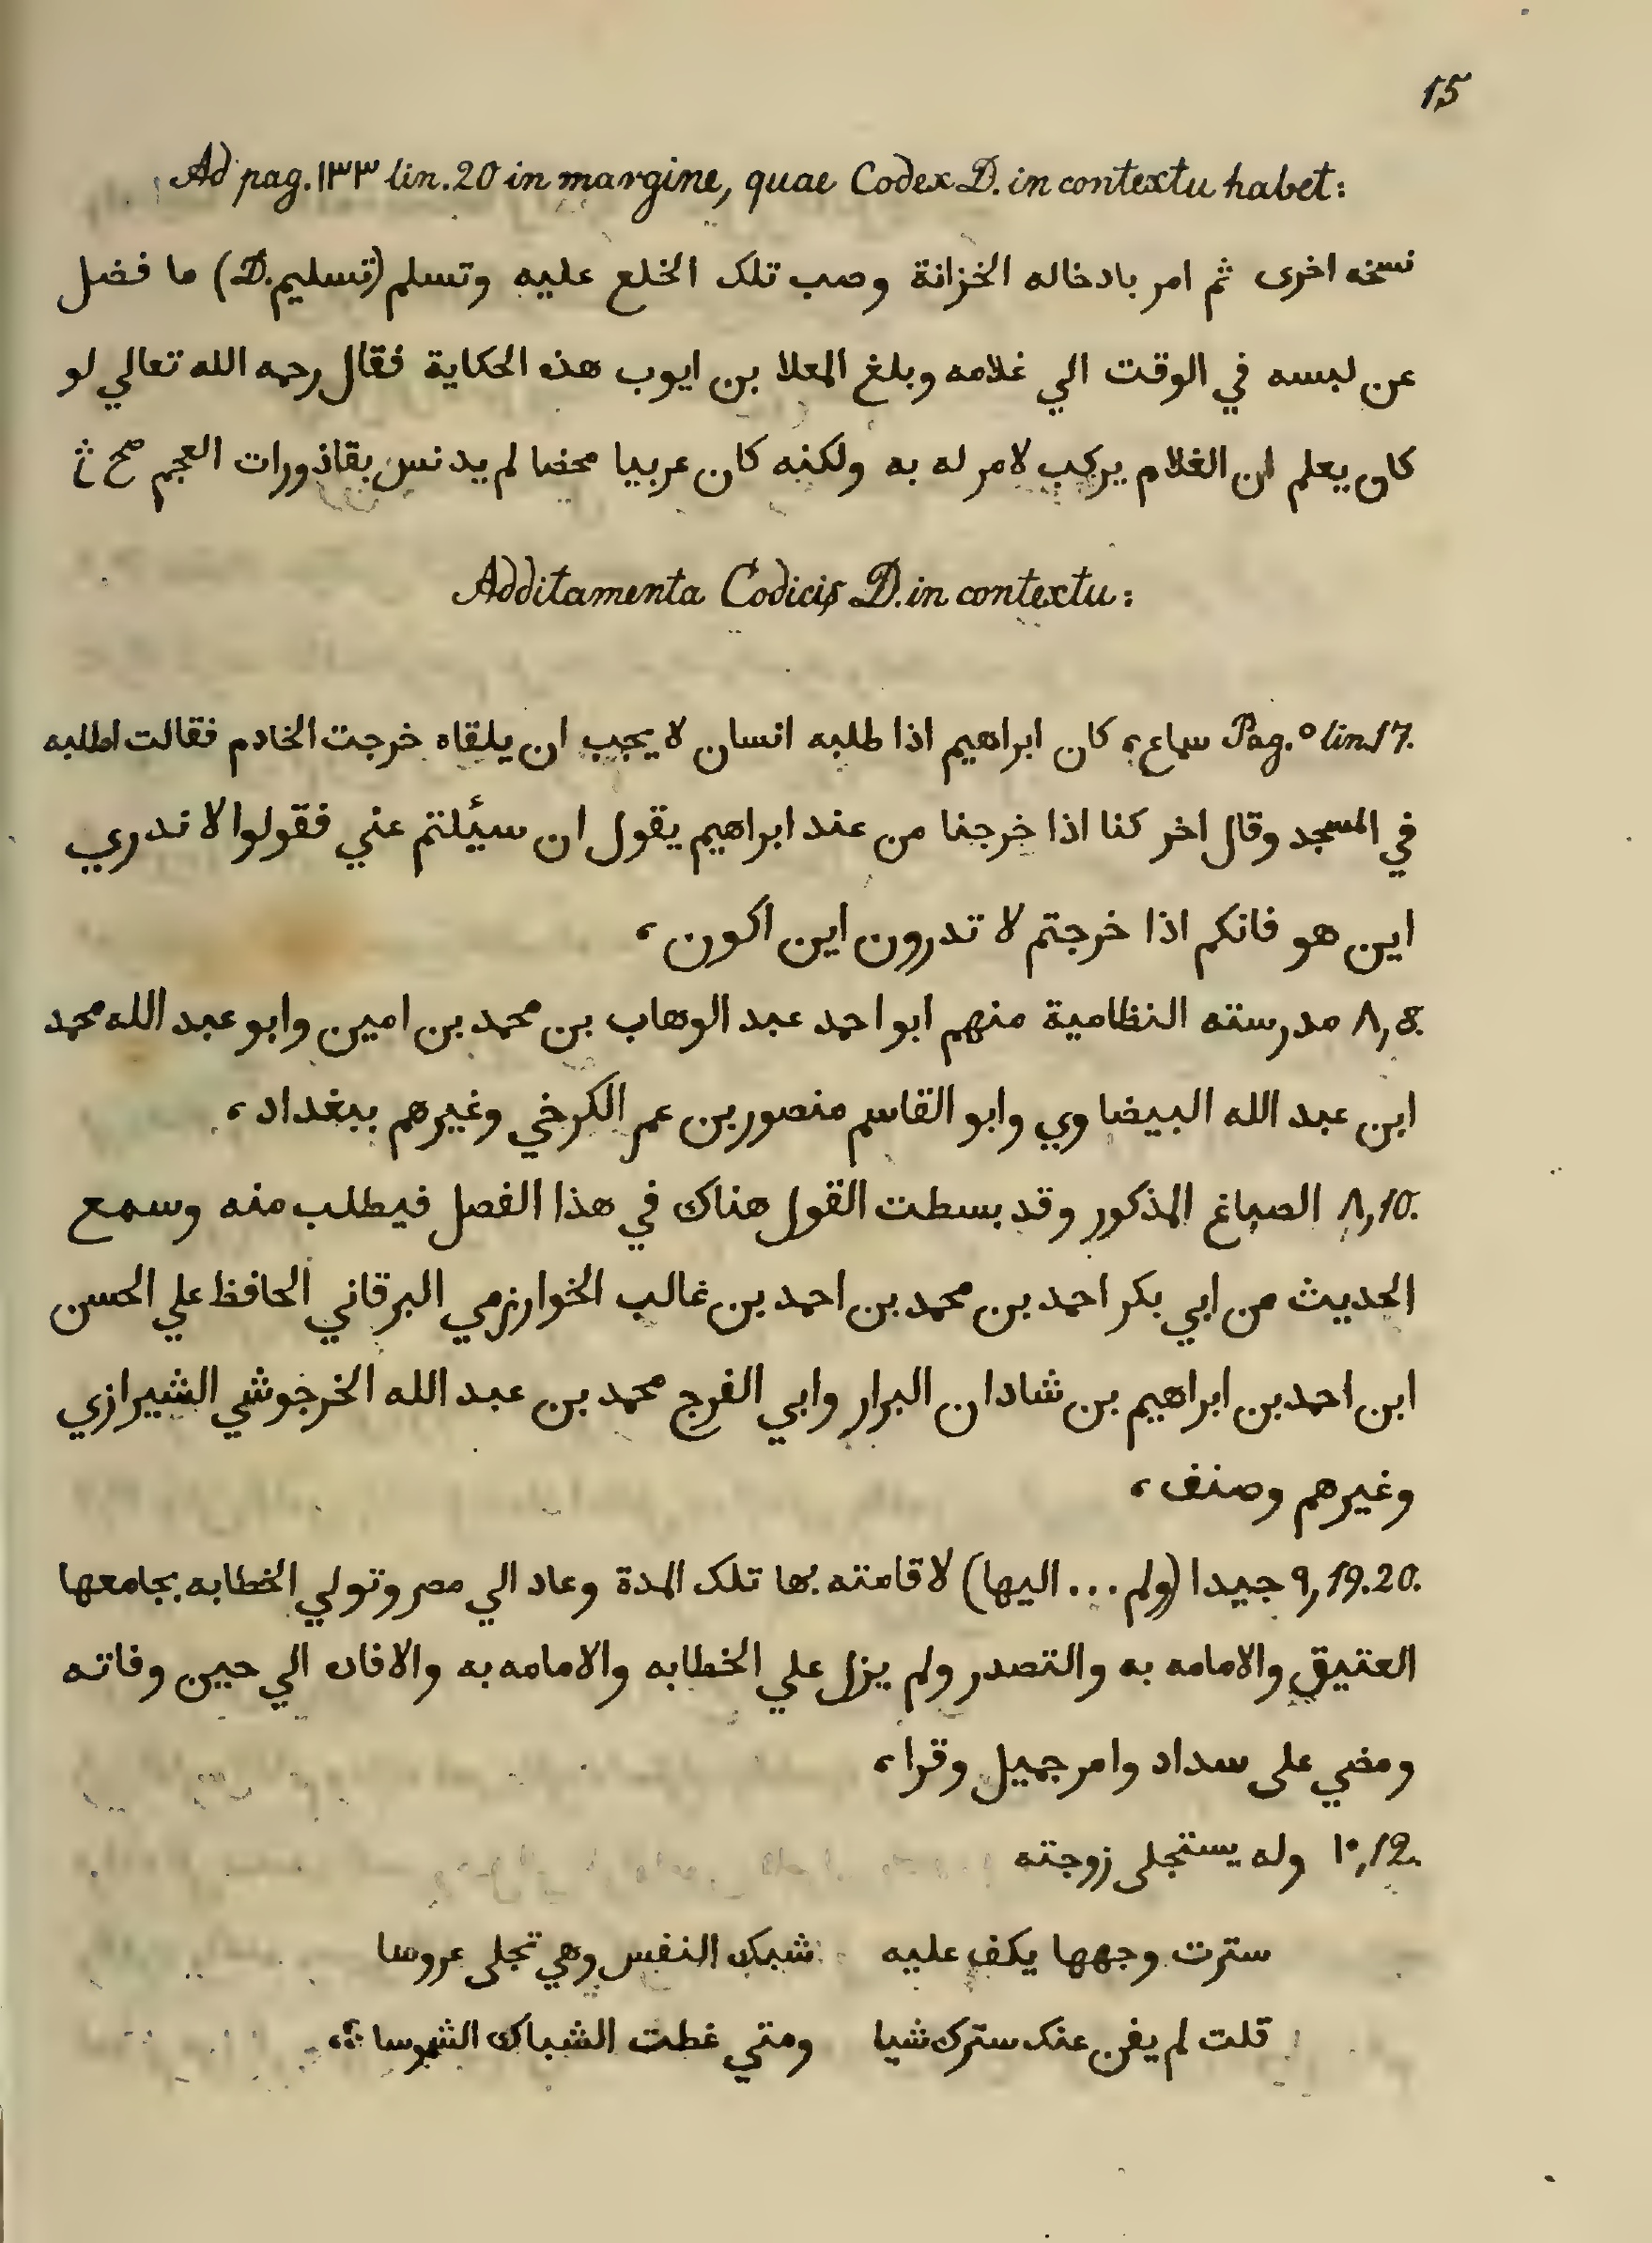 15
Ad pag. ١٣٣ lin. 20 in margine, quae Codex D. in contextu habet:
نسخه اخرى ثم امر بادخاله الخزانة وصب تلك الخلع عليه وتسلم (تسليم .D) ما فضل
عن لبسه في الوقت الي غلامه وبلغ المعلا بن ايوب هذه الحكاية فقال رحمه الله تعالي لو
كان يعلم ان الغلام يركب لامر له به ولكنه كان عربيا محضا لم يدنس بقاذورات العجم صح
Additamenta Codicis D. in contextu:
Pag. ٥ lin. 17. سماع، كان ابراهيم اذا طلبه انسان لا يجب ان يلقاه خرجت الخادم فقالت اطلبه
في المسجد وقال اخر كنا اذا خرجنا من عند ابراهيم يقول ان سئلتم عني فقولوا لا ندري
اين هو فانكم اذا خرجتم لا تدرون اين اكون،
٨, 8. مدرسته النظامية منهم ابو احمد عبد الوهاب بن محمد بن امين وابو عبد الله محمد
ابن عبد الله البيضاوي وابو القاسم منصور بن عمر الكرخي وغيرهم ببغداد،
٨, 10. الصباغ المذكور وقد بسطت القول هناك في هذا الفصل فيطلب منه وسمع
الحديث من ابي بكر احمد بن محمد بن احمد بن غالب الخوارزمي البرقاني الحافظ علي الحسن
ابن احمد بن ابراهيم بن شادان البرار وابي الفرج محمد بن عبد الله الخرجوشي الشيرازي
وغيرهم وصنف،
٩, 19. 20. جيدا (ولم ... اليها) لاقامته بها تلك المدة وعاد الي مصر وتولي الخطابه بجامعها
العتيق والامامه به والتصدر ولم يزل علي الخطابه والامامه به والافاد الي حين وفاته
ومضي على سداد وامر جميل وقرا،
١٠, 12. وله يستجلى زوجته
سترت وجهها يكف عليه شبك النفس وهي تجلى عروسا
قلت لم يغن عنك سترك شيا ومتي غطت الشباك الشموسا